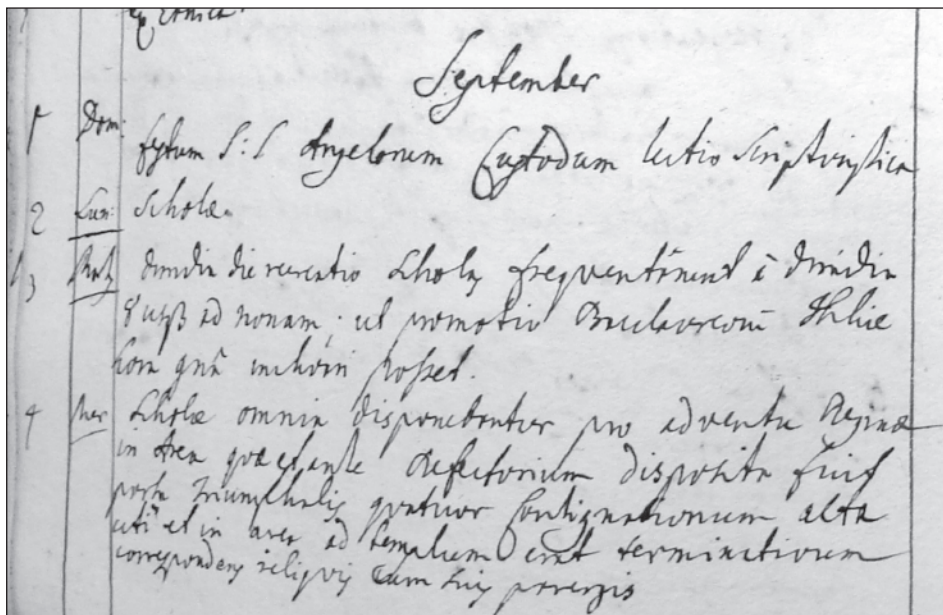 September
1 Dom: festum S: S Angelorum Custodum lectio scripturistica
2 Lun: Scholæ.
3 dimidia die recreatio Scholas frequentârunt à dimidia
8 usq ad nonam, ut promotio Baccalaureorũ
hora posset.
4 Mer Scholæ omnia disponebantur pro adventu Reginæ
in Area quæ est ante Refectorium disposita fuit
porta triumphalis quatuor Contignationum alta
uti et in area ad templum erat terminativum
correspondens reliquis cum suis